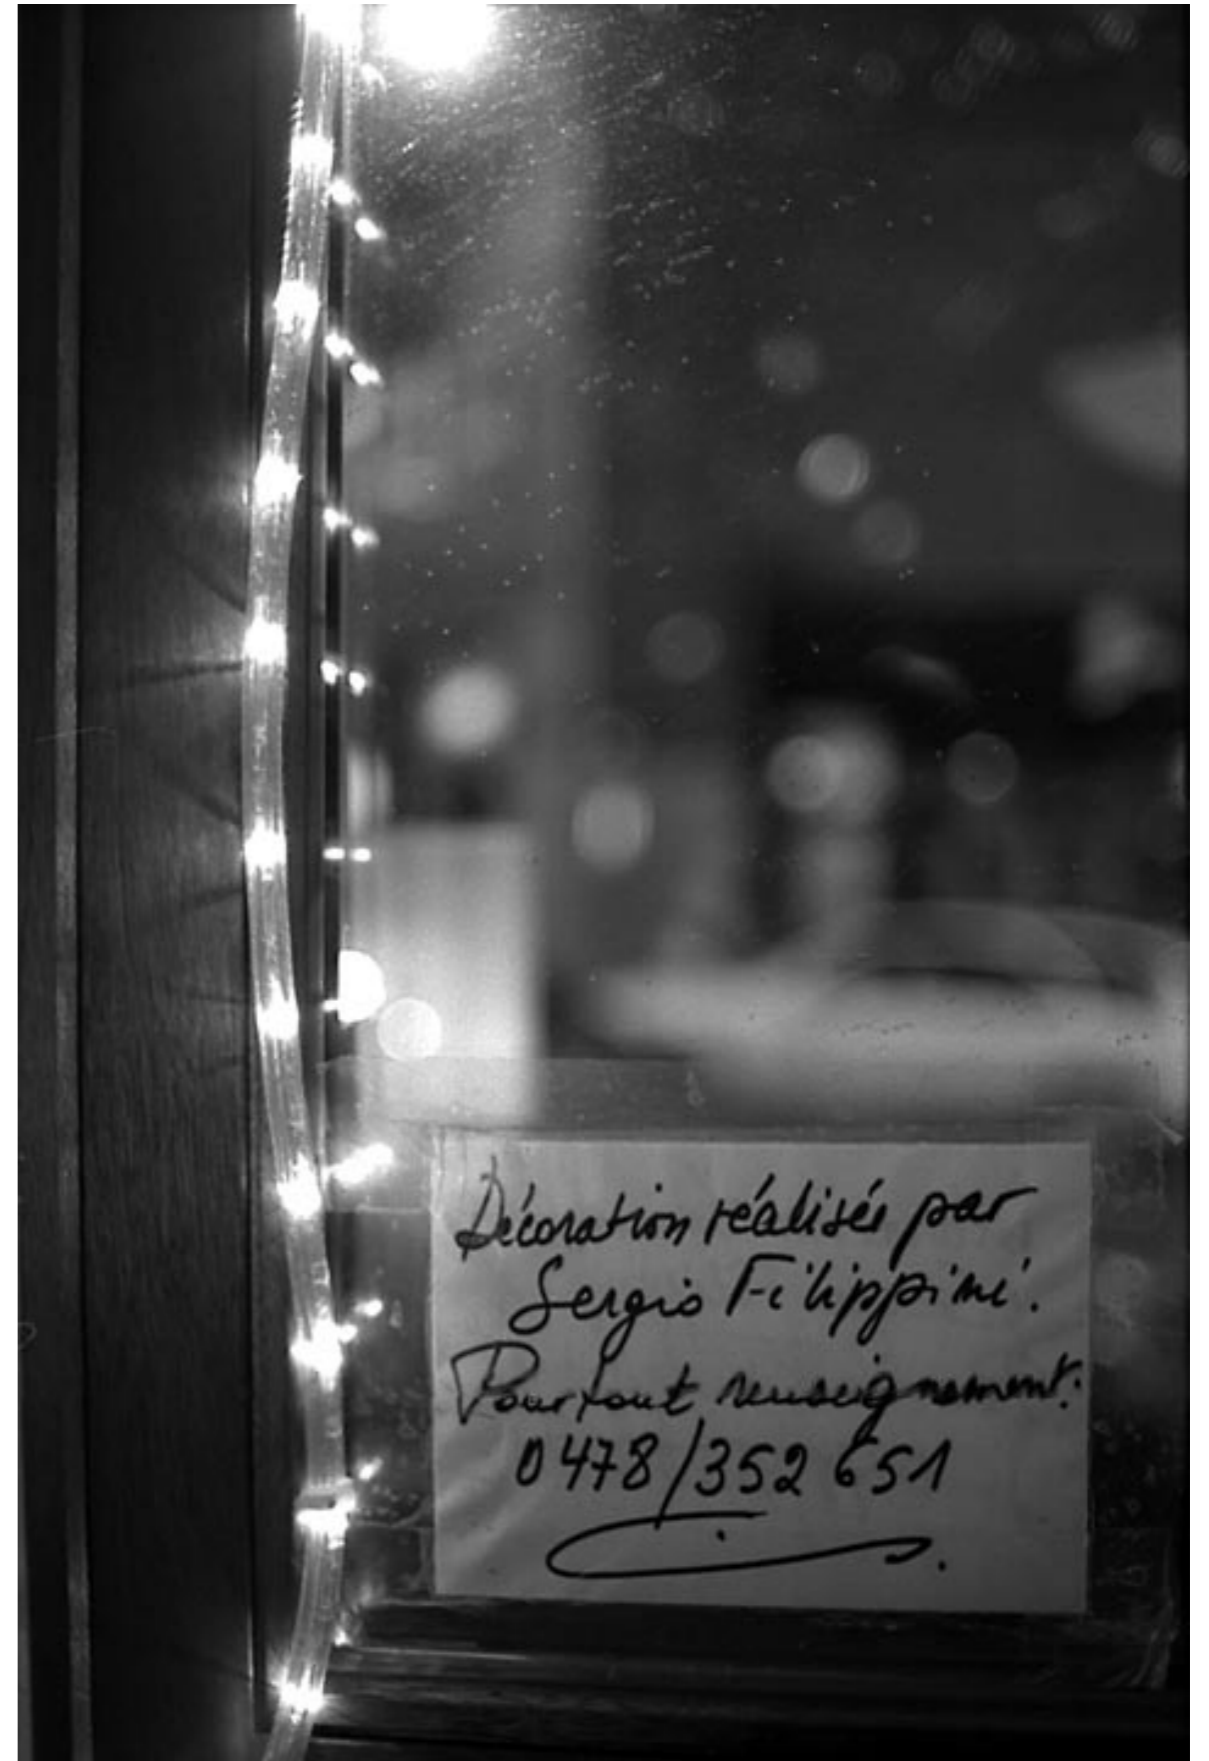 Décoration réalisés par
Sergio Filippini.
Pour tout renseignement:
0478/352 651